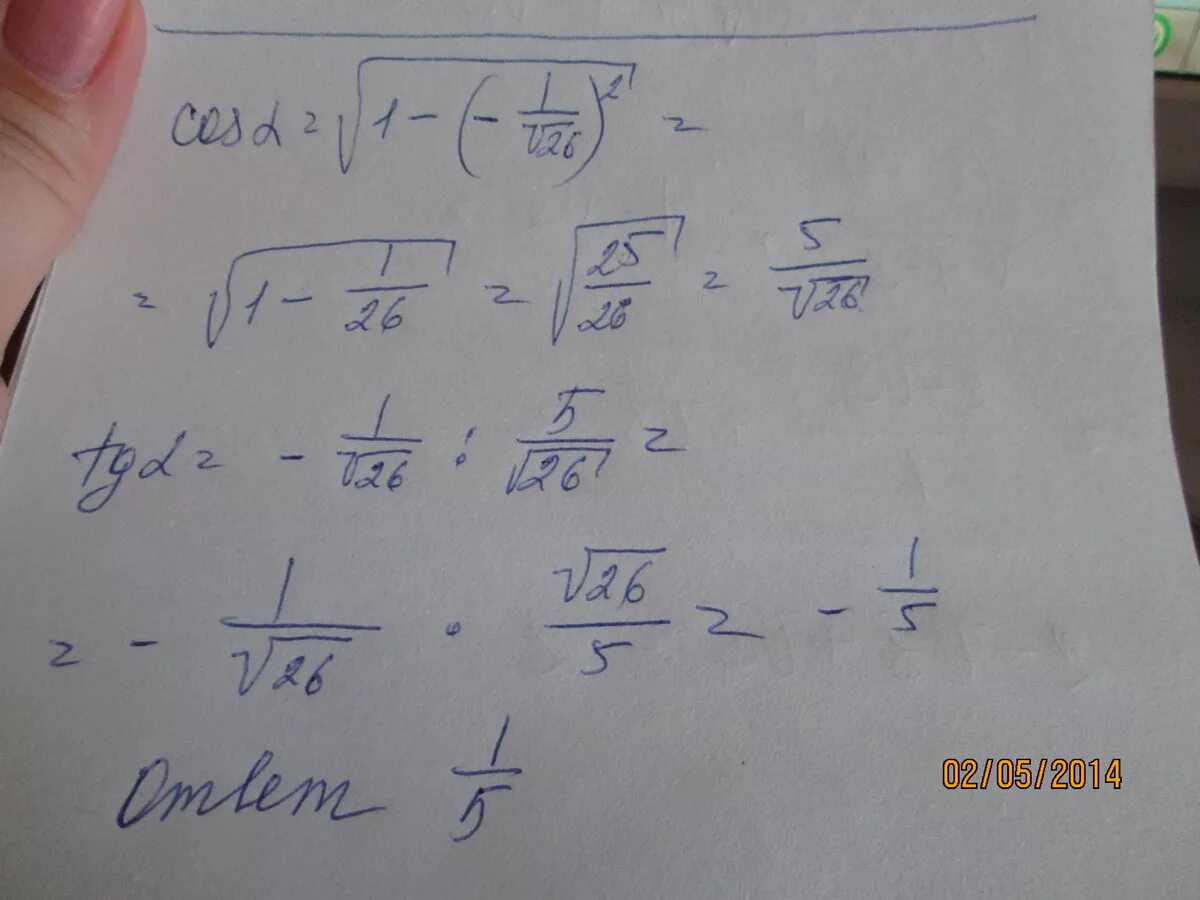 cos α = √(1 − (− 1/√26)²) =
= √(1 − 1/26) = √(25/26) = 5/√26
tg α = − 1/√26 : 5/√26 =
= − 1/√26 · √26/5 = − 1/5
Ответ 1/5
02/05/2014